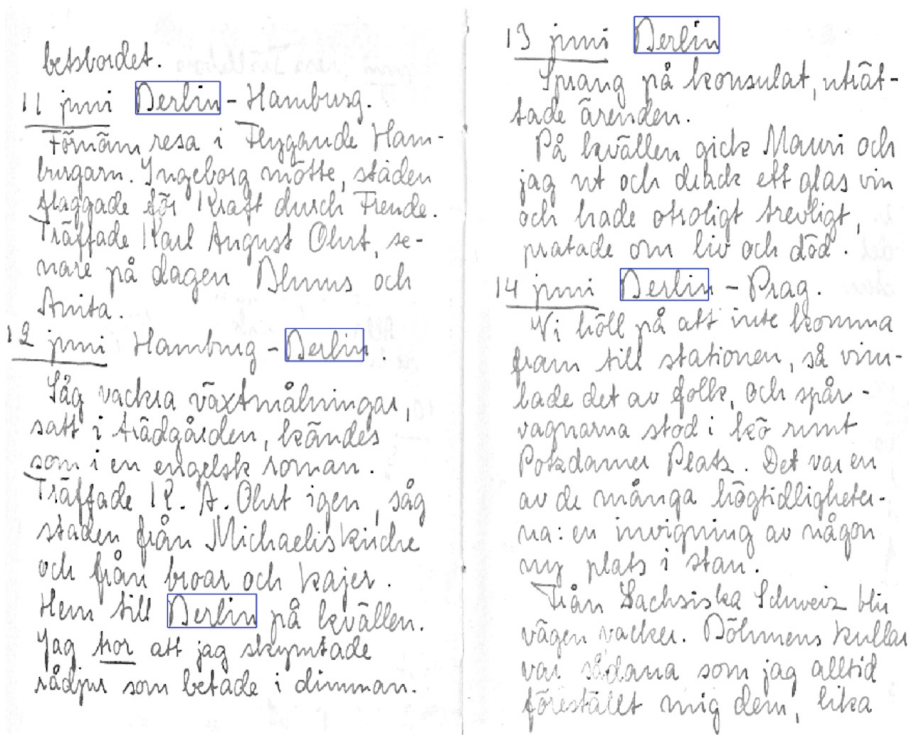 betsbordet.
11 juni Berlin - Hamburg.
Förnäm resa i Flygande Ham-
burgarn. Ingeborg mötte, staden
flaggade för Kraft durch Freude.
Träffade Karl August Ohrt, se-
nare på dagen Blumus och
Anita.
12 juni Hamburg - Berlin.
Såg vackra växtmålningar,
satt i trädgården, kändes
som i en engelsk roman.
Träffade K. A. Ohrt igen, såg
staden från Michaeliskirche
och från broar och kajer.
Hem till Berlin på kvällen.
Jag tror att jag skymtade
rådjur som betade i dimman.
13 juni Berlin
Sprang på konsulat, uträt-
tade ärenden.
På kvällen gick Mauri och
jag ut och drack ett glas vin
och hade otroligt trevligt,
pratade om liv och död.
14 juni Berlin - Prag.
Vi höll på att inte komma
fram till stationen, så vim-
lade det av folk, och spår-
vagnarna stod i kö runt
Potzdamer Platz. Det var en
av de många högtidligheter-
na: en invigning av någon
ny plats i stan.
Från Sachsiska Schweiz blir
vägen vacker. Böhmens kullar
var sådana som jag alltid
föreställt mig dem, lika